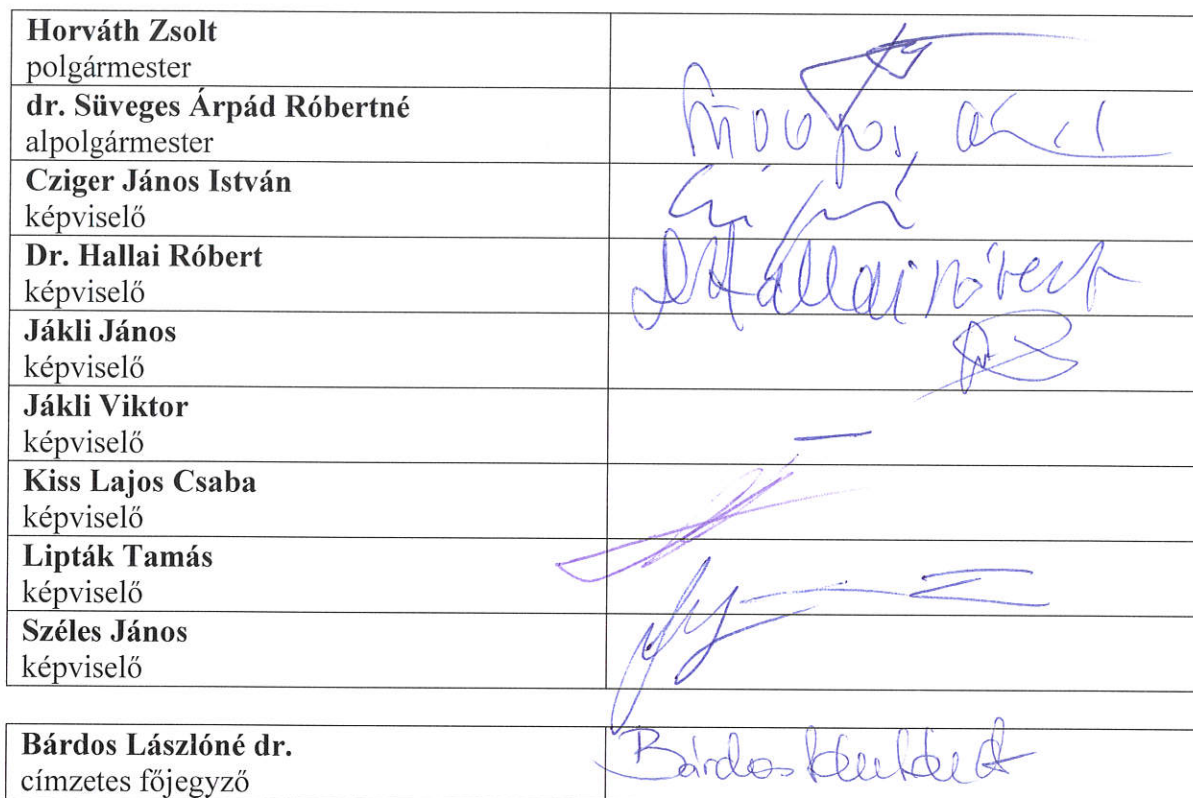 Horváth Zsolt
polgármester
dr. Süveges Árpád Róbertné
alpolgármester
Cziger János István
képviselő
Dr. Hallai Róbert
képviselő
Dr Hallai Róbert
Jákli János
képviselő
Jákli Viktor
képviselő
Kiss Lajos Csaba
képviselő
Lipták Tamás
képviselő
Széles János
képviselő
Bárdos Lászlóné dr.
címzetes főjegyző
Bárdos